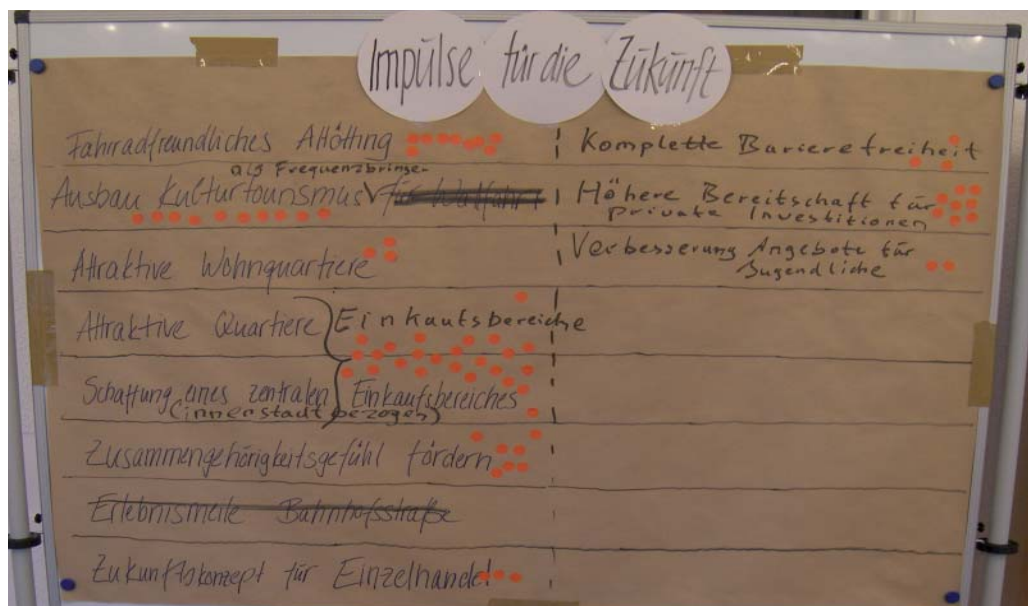 Impulse für die Zukunft
Fahrradfreundliches Altötting
als Frequenzbringer
Ausbau Kulturtourismus für Wallfahrt
Attraktive Wohnquartiere
Attraktive Quartiere Einkaufsbereiche
Schaffung eines zentralen Einkaufsbereiches
(innenstadtbezogen)
Zusammengehörigkeitsgefühl fördern
Erlebnismeile Bahnhofsstraße
Zukunftskonzept für Einzelhandel
Komplette Barierefreiheit
Höhere Bereitschaft für
private Investitionen
Verbesserung Angebote für
Jugendliche